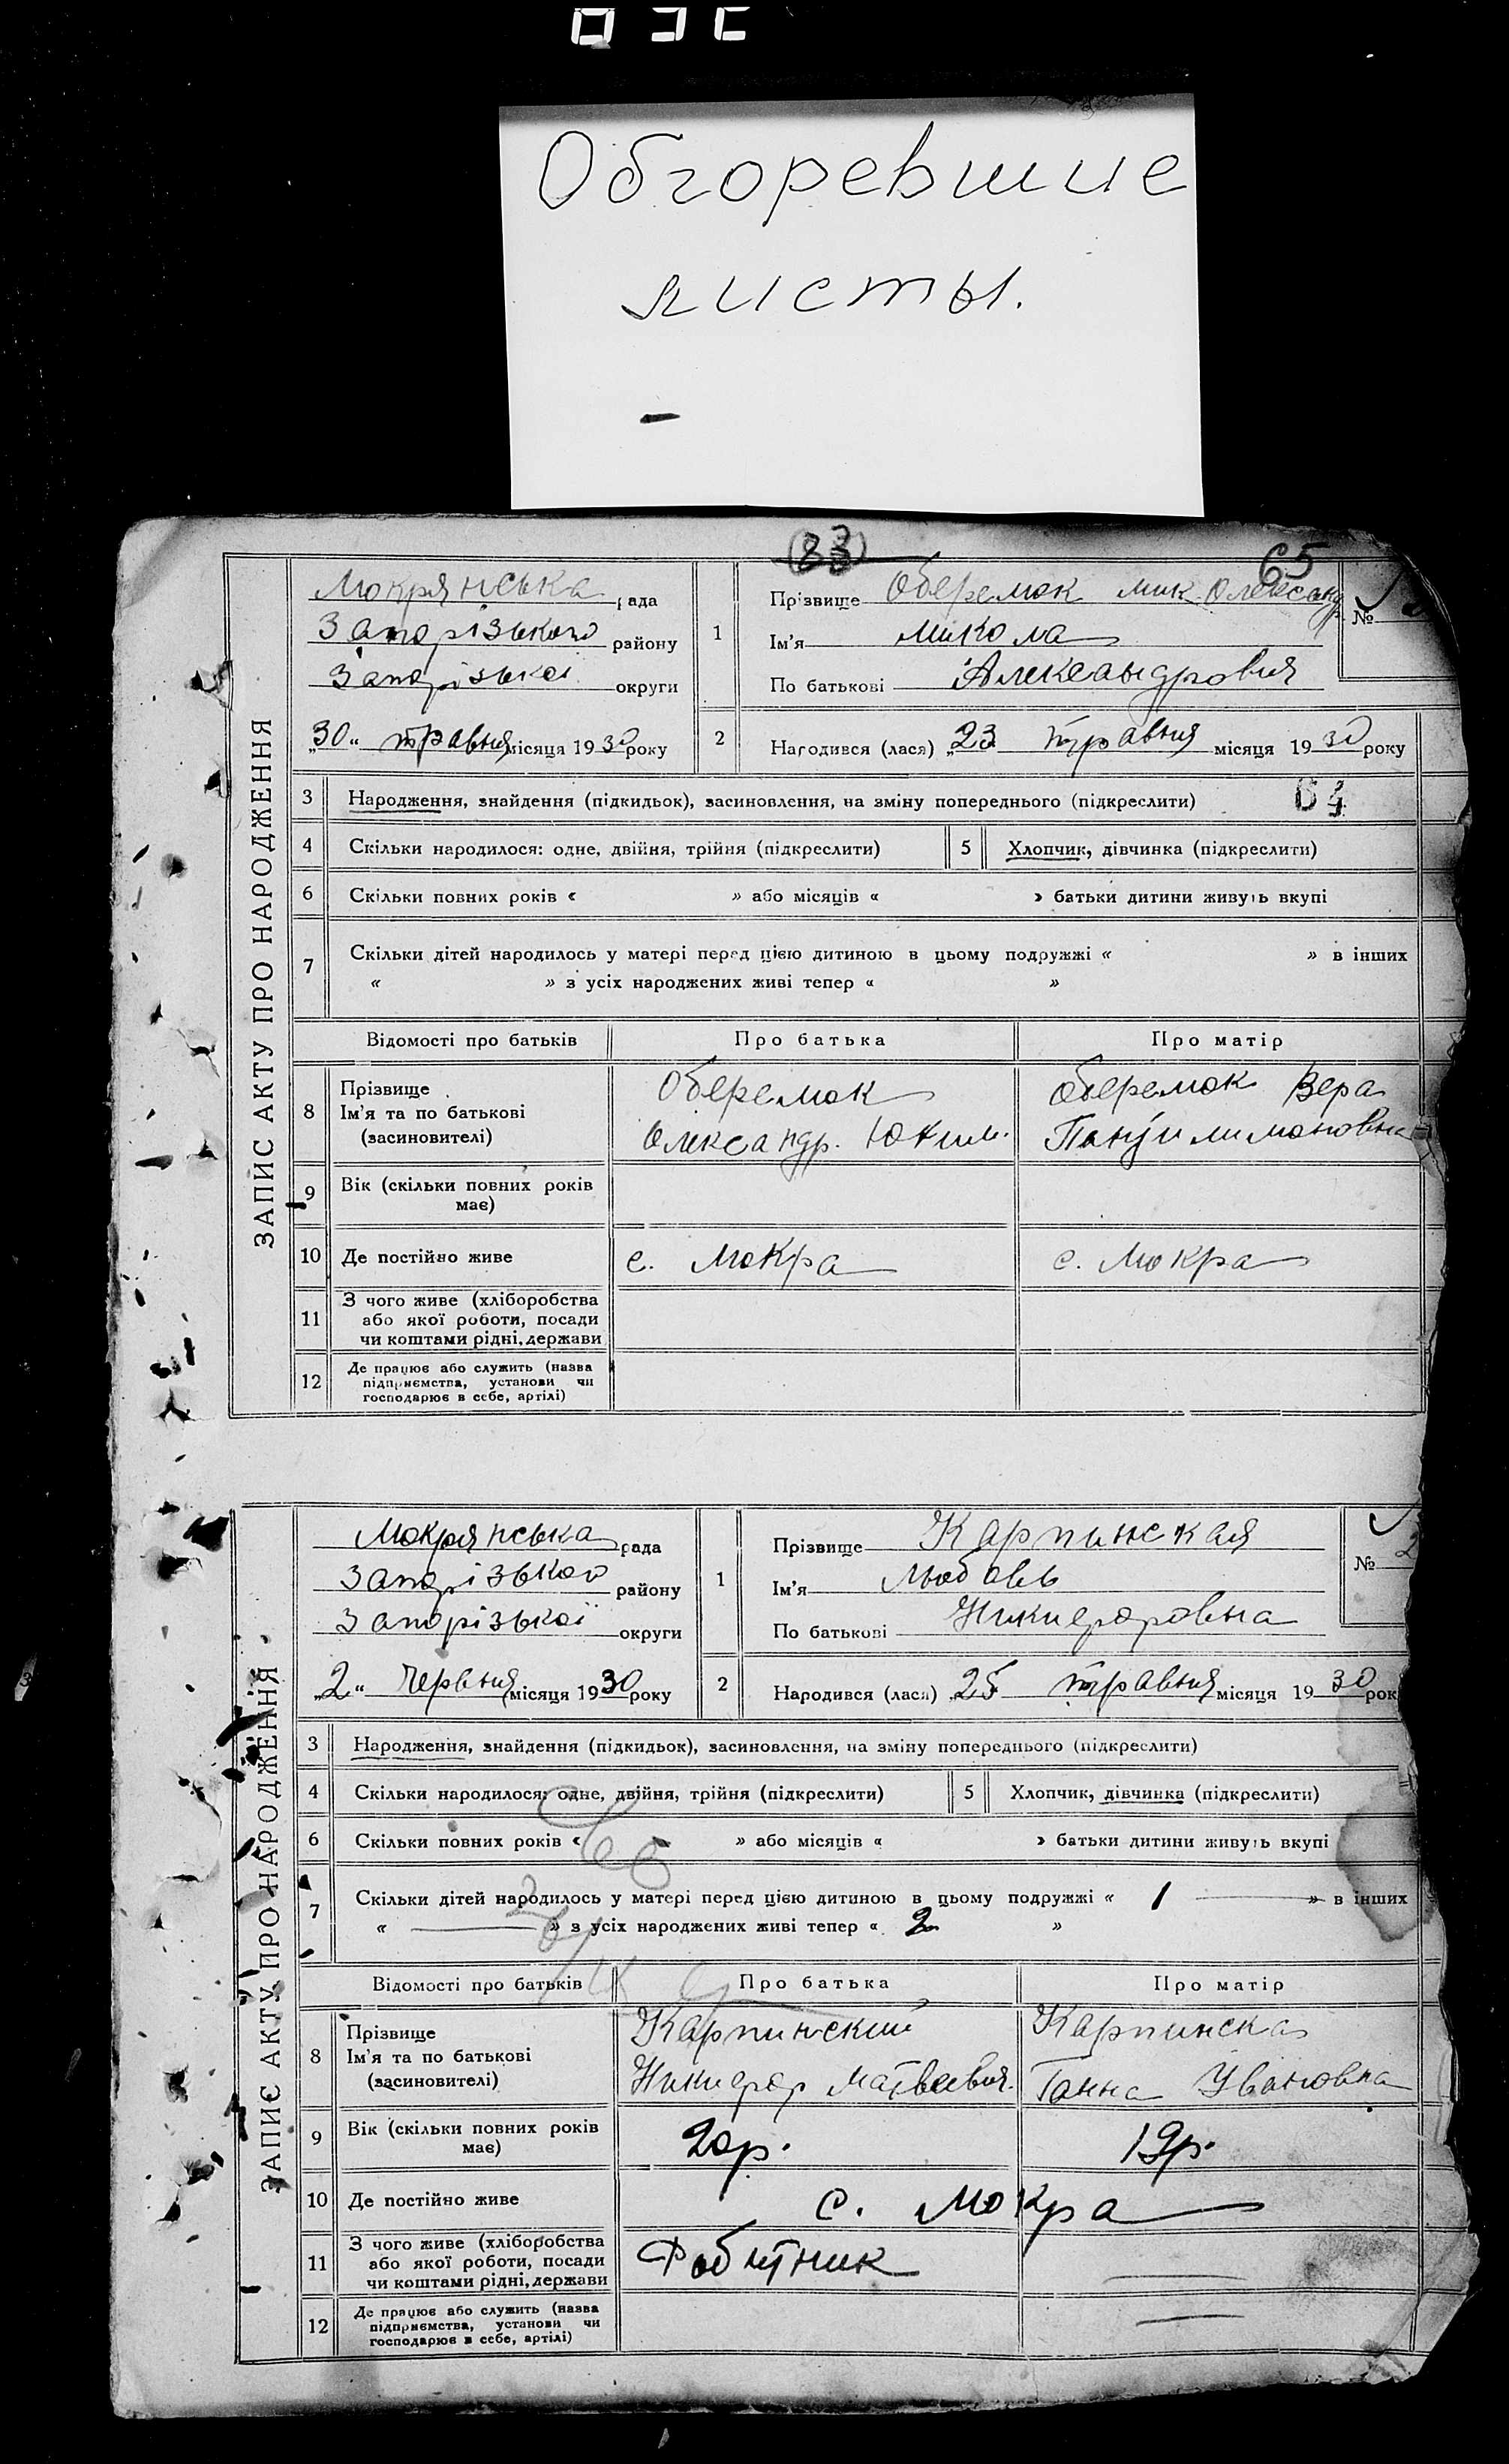 Обгоревшие
листы.
(83)
65
ЗАПИС АКТУ ПРО НАРОДЖЕННЯ
Мокрянська рада
Запорізького району
Запорізької округи
„30“ травня місяця 1930 року
1 Прізвище Оберемок Мик. Олександ
Ім'я Микола
По батькові Александрович
№
2 Народився (лася) „23 травня місяця 1930 року
3 Народження, знайдення (підкидьок), засиновлення, на зміну попереднього (підкреслити)
64
4 Скільки народилося: одне, двійня, трійня (підкреслити) 5 Хлопчик, дівчинка (підкреслити)
6 Скільки повних років « » або місяців « » батьки дитини живуть вкупі
7 Скільки дітей народилось у матері перед цією дитиною в цьому подружжі « » в інших
« » з усіх народжених живі тепер « »
Відомості про батьків Про батька Про матір
8 Прізвище Оберемок Оберемок Вера
Ім'я та по батькові
(засиновителі) Олександр. Юхим. Пантилимоновна
9 Вік (скільки повних років
має)
10 Де постійно живе с. Мокра с. Мокра
11 З чого живе (хліборобства
або якої роботи, посади
чи коштами рідні, держави
12 Де працює або служить (назва
підприємства, установи чи
господарює в себе, артілі)
ЗАПИС АКТУ ПРО НАРОДЖЕННЯ
Мокрянська рада
Запорізького району
Запорізької округи
„2“ червня місяця 1930 року
1 Прізвище Карпинская
Ім'я Любовь
По батькові Никифоровна
№ 2
2 Народився (лася) „25 травня місяця 1930 рок
3 Народження, знайдення (підкидьок), засиновлення, на зміну попереднього (підкреслити)
4 Скільки народилося: одне, двійня, трійня (підкреслити) 5 Хлопчик, дівчинка (підкреслити)
6 Скільки повних років « » або місяців « » батьки дитини живуть вкупі
7 Скільки дітей народилось у матері перед цією дитиною в цьому подружжі « 1 — » в інших
« — » з усіх народжених живі тепер « 2 »
Відомості про батьків Про батька Про матір
8 Прізвище Карпинский Карпинска
Ім'я та по батькові
(засиновителі) Никифор Матвеевич. Ганна Ивановна
9 Вік (скільки повних років 20р. 19р.
має)
10 Де постійно живе с. Мокра
11 З чого живе (хліборобства
або якої роботи, посади Робітник —
чи коштами рідні, держави
12 Де працює або служить (назва
підприємства, установи чи —
господарює в себе, артілі)